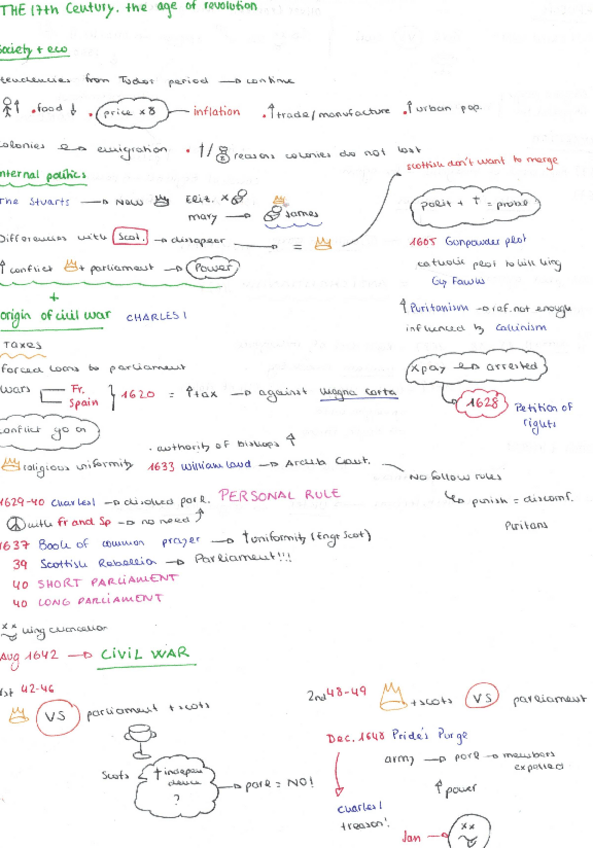 THE 17th Century. the age of revolution
Society + eco
tendencies from Tudor period → continue
↑ • food ↓ • price x8 — inflation • ↑ trade/manufacture • ↑ urban pop.
colonies emigration • ↑/ reasons colonies do not last
scottish don't want to merge
internal politics
The Stuarts → New Eliz. x
mary → James
Differences with Scot. → dissapear → =
↑ conflict + parliament → Power
polit + † = probl
1605 Gunpowder plot
catholic plot to kill king
Guy Fawkes
↑ Puritanism → ref. not enough
influenced by Calvinism
+
origin of civil war CHARLES I
TAXES
forced loans to parliament
wars Fr. Spain } 1620 = ↑ tax → against Magna Carta
x pay arrested
1628 Petition of rights
conflict go on
• authority of bishops ↑
religious uniformity 1633 William Laud → Archb. Cant.
No follow rules
↳ punish = disconf.
Puritans
1629-40 Charles I → disolved parl. PERSONAL RULE
with Fr and Sp → no need ↑
1637 Book of common prayer → ↑ uniformity (Eng Scot)
39 Scottish Rebellion → Parliament!!!
40 SHORT PARLIAMENT
40 LONG PARLIAMENT
xx king
Aug 1642 → CIVIL WAR
1st 42-46
VS parliament + scots
Scots + independence ? → parl = NO!
2nd 48-49 + scots VS parliament
Dec. 1648 Pride's Purge
army → parl → members
expelled
↑ power
Charles I
treason!
Jan → xx